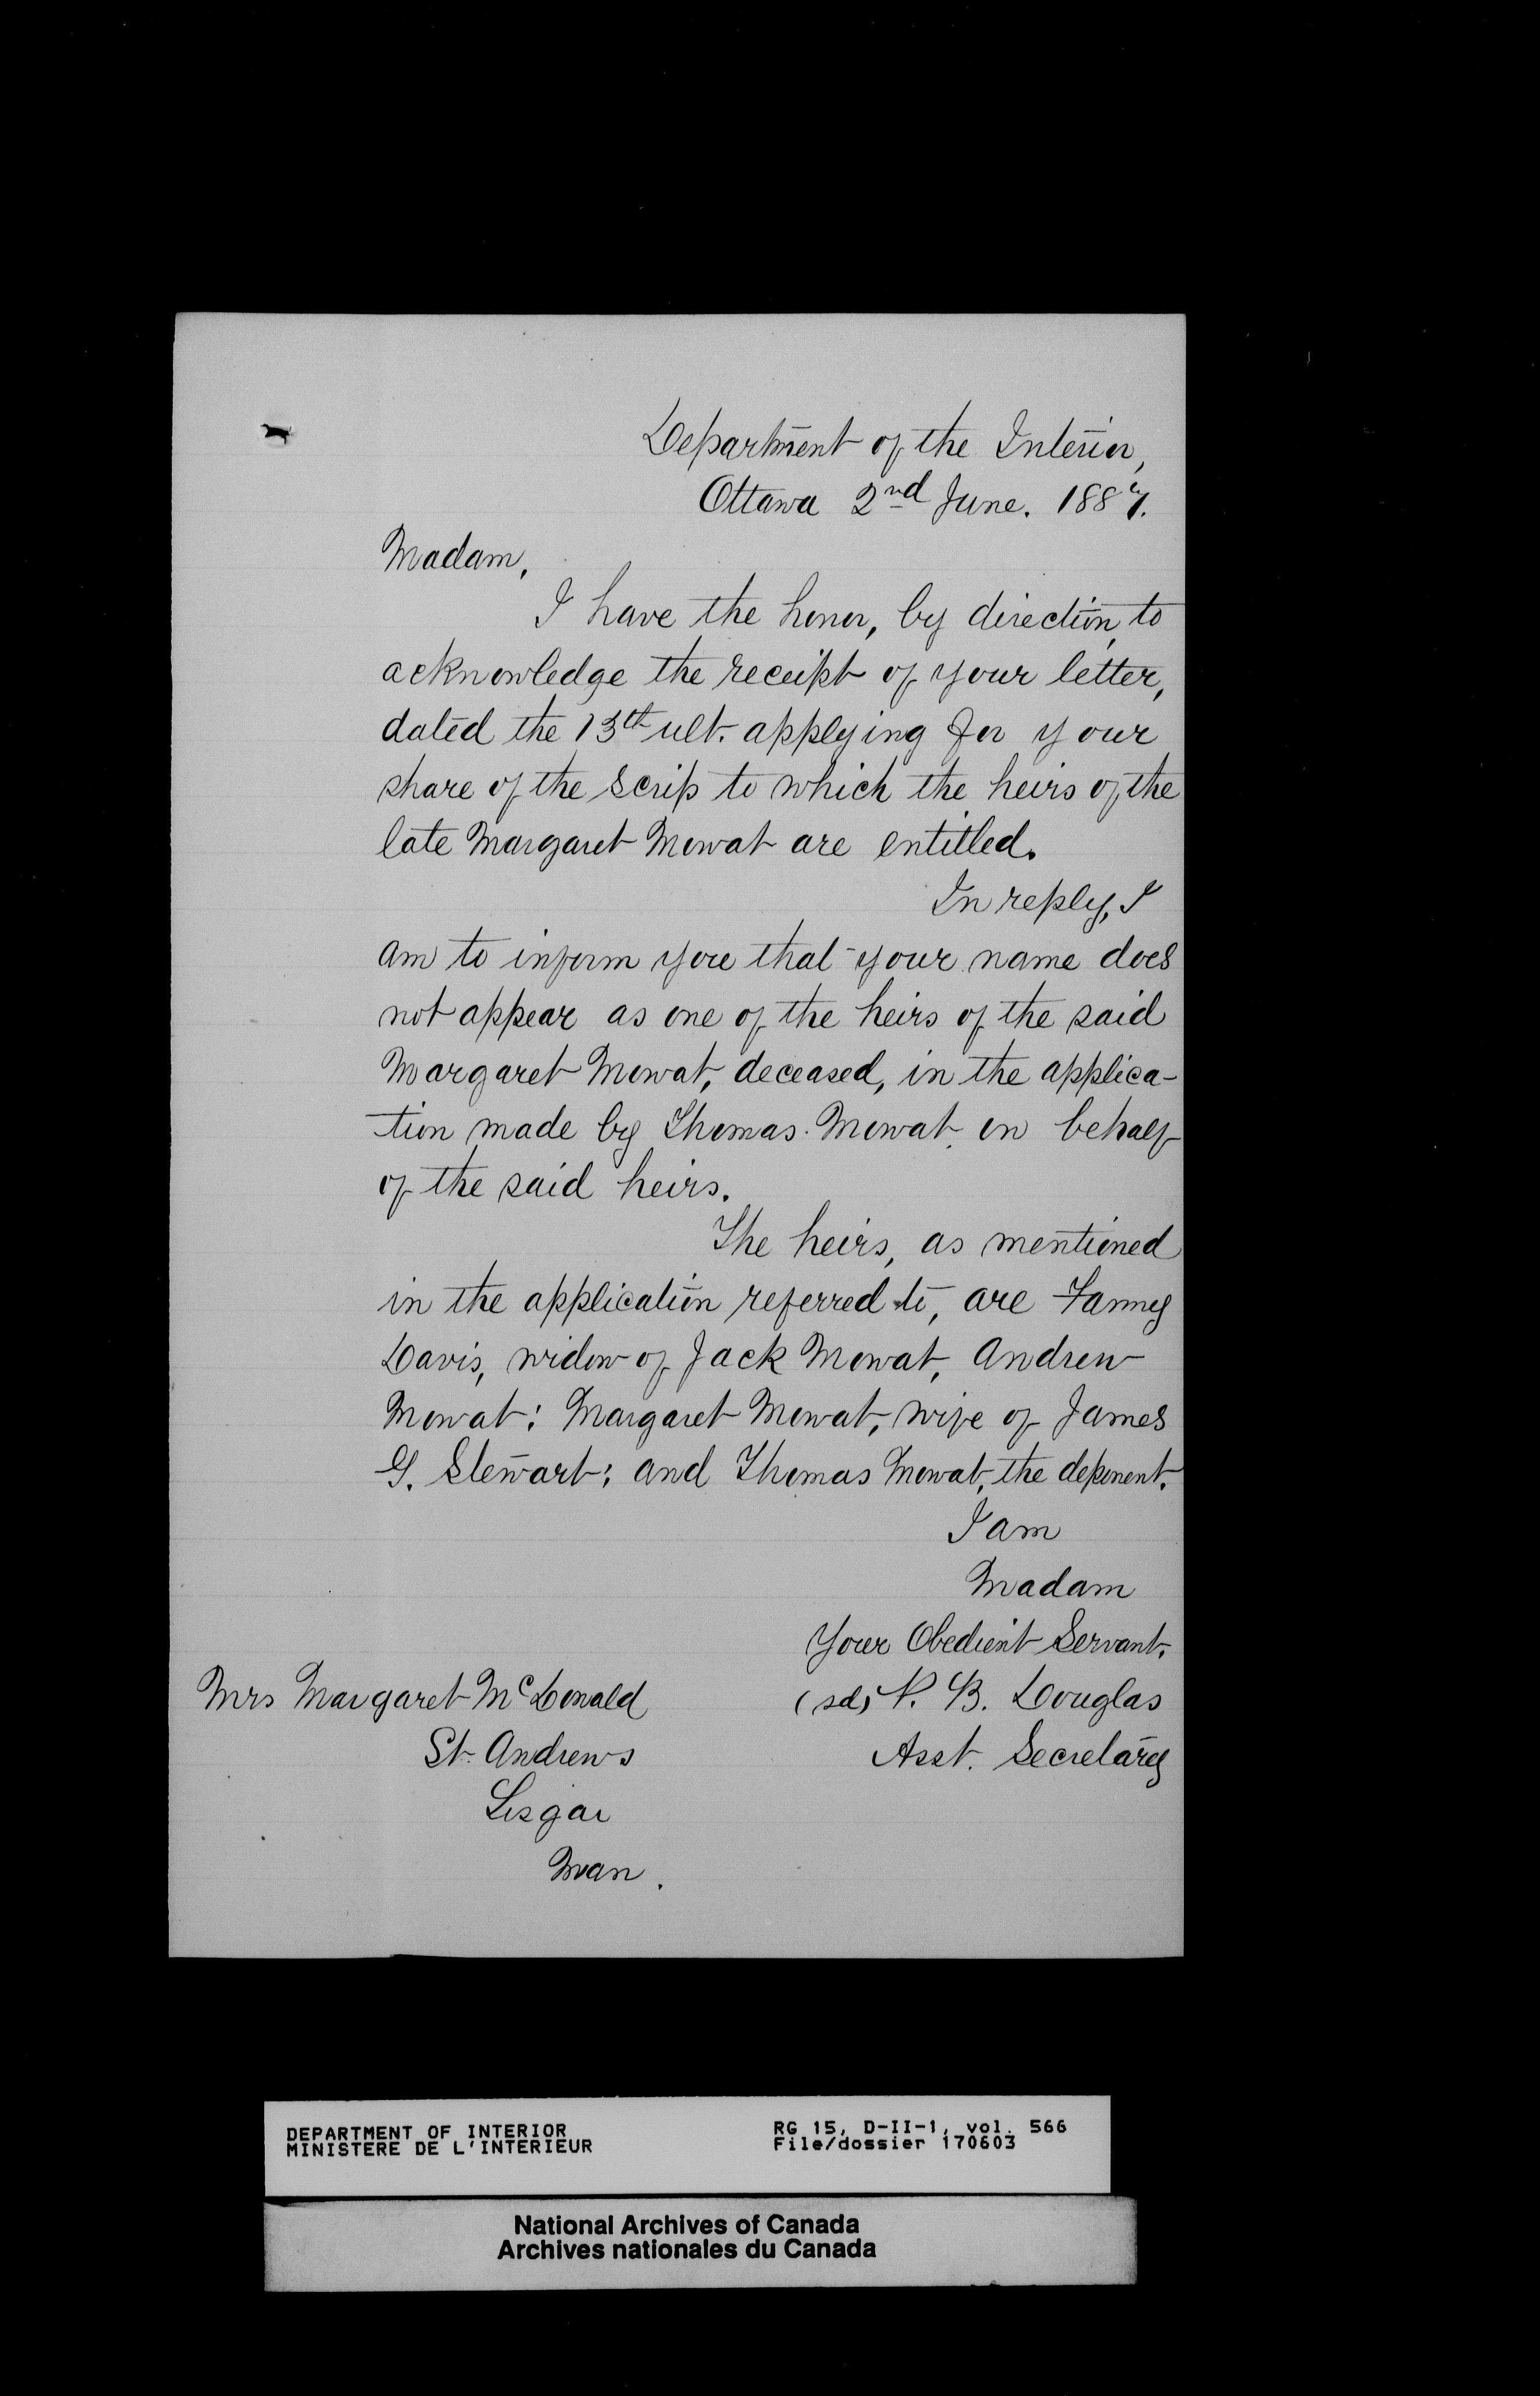 Department of the Interior,
Ottawa 2nd June. 1887.
Madam,
I have the honor, by direction, to
acknowledge the receipt of your letter,
dated the 13th ult. applying for your
share of the scrip to which the heirs of the
late Margaret Mowat are entitled.
In reply, I
am to inform you that your name does
not appear as one of the heirs of the said
Margaret Mowat, deceased, in the applica-
tion made by Thomas Mowat on behalf
of the said heirs.
The heirs, as mentioned
in the application referred to, are Fanny
Davis, widow of Jack Mowat, Andrew
Mowat; Margaret Mowat, wife of James
G. Stewart; and Thomas Mowat, the deponent.
I am
Madam
Your Obedient Servant.
Mrs Margaret McDonald (sd) P. B. Douglas
St. Andrews Asst. Secretary
Lisgar
Man.
DEPARTMENT OF INTERIOR RG 15, D-II-1, vol. 566
MINISTERE DE L'INTERIEUR File/dossier 170603
National Archives of Canada
Archives nationales du Canada